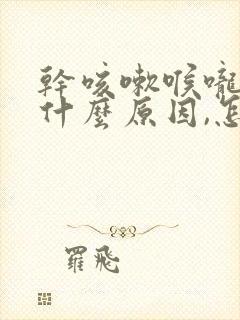 幹咳嗽喉嚨
什麼原因,怎
羅飛